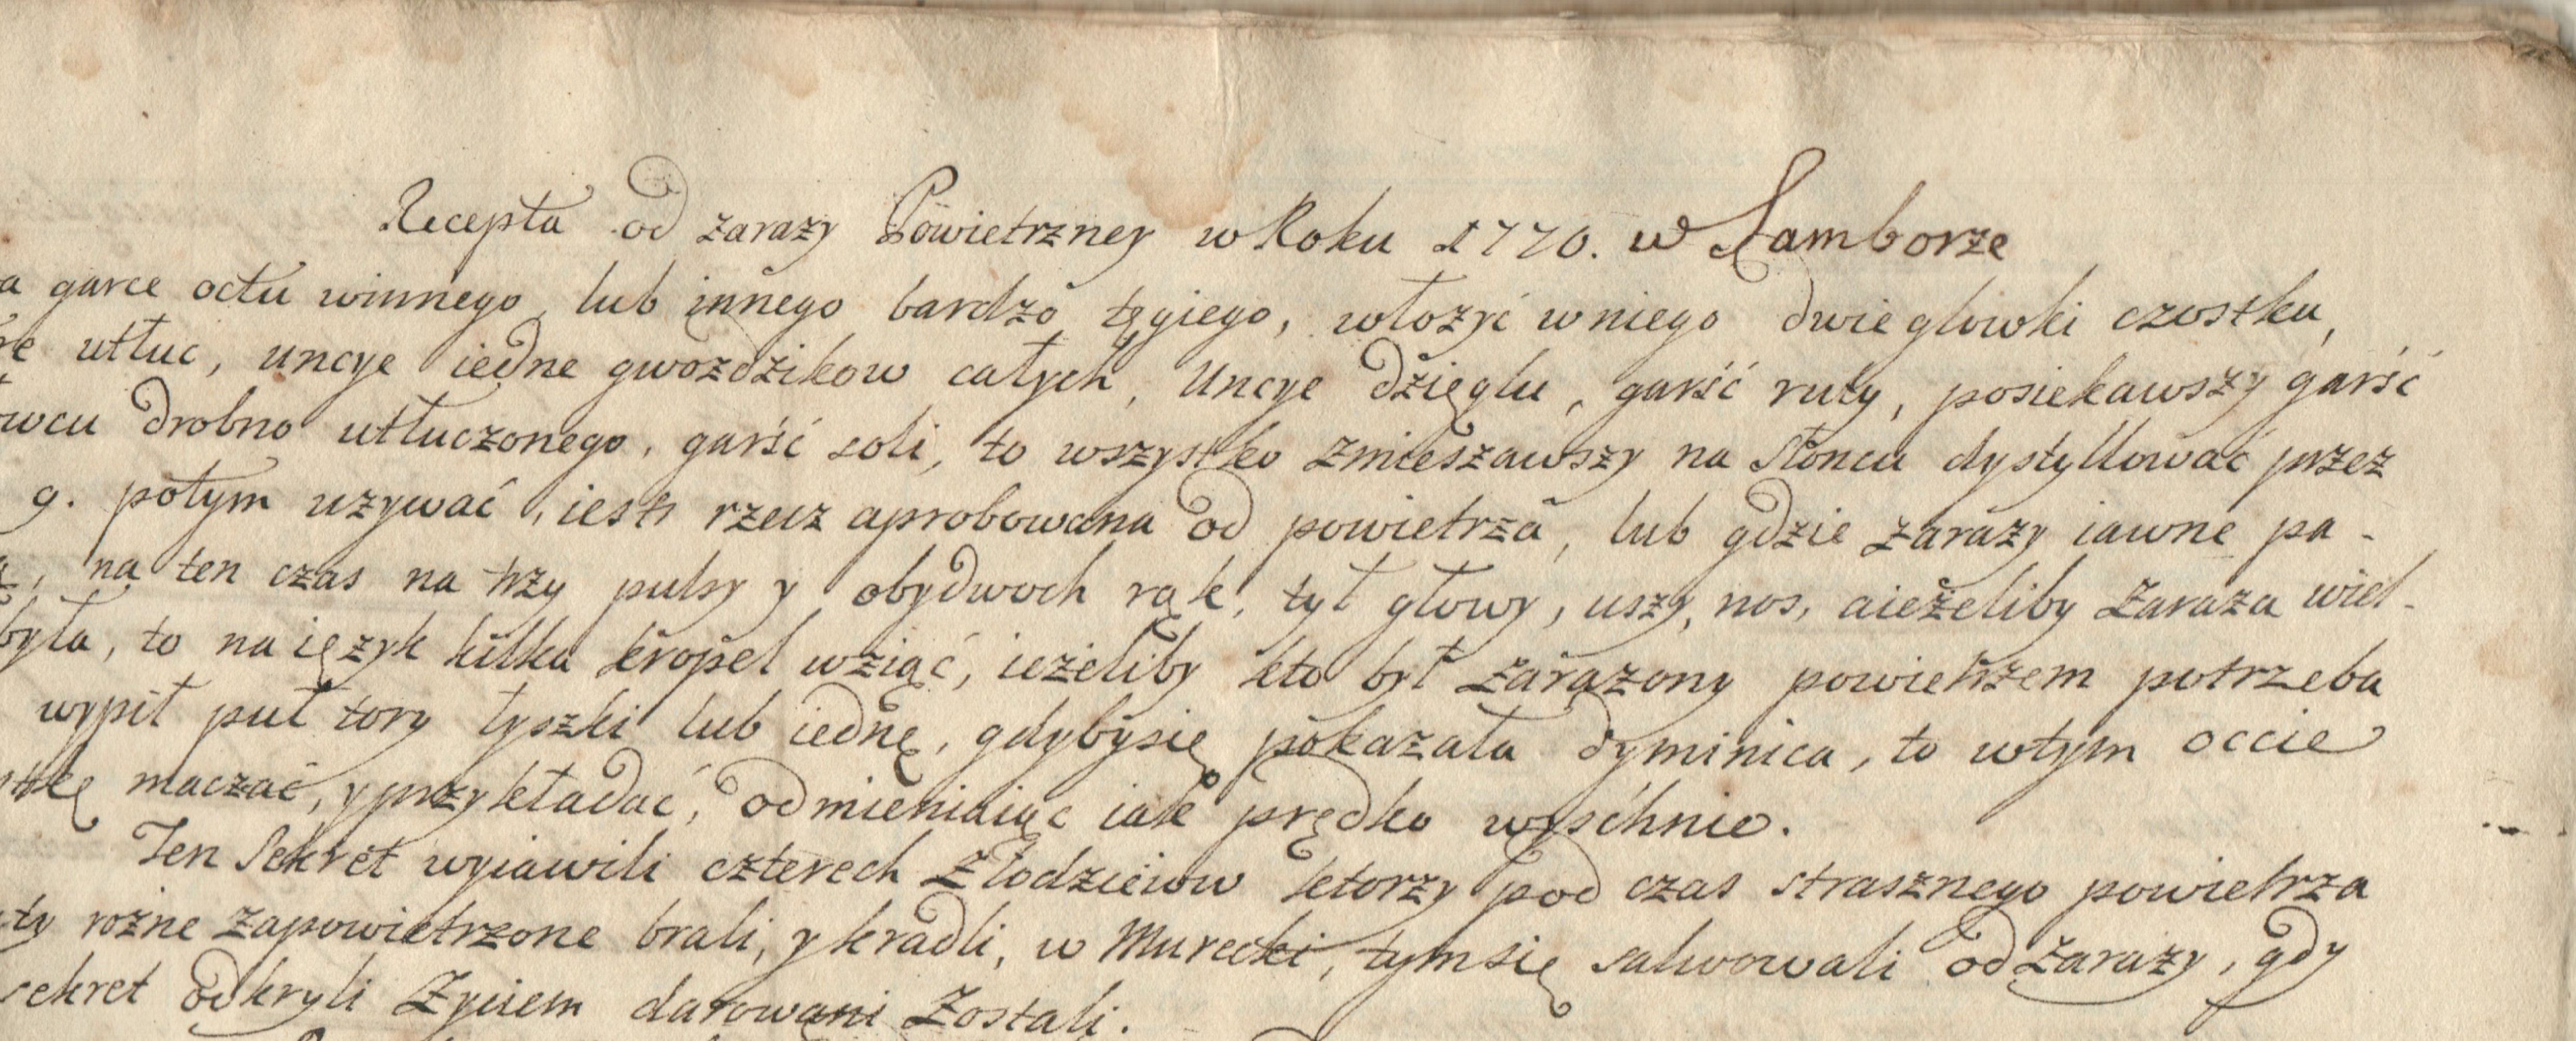 Recepta od zarazy Powietrzney w Roku 1770. w Samborze
a garce octu winnego, lub innego bardzo tęgiego, włozyć w niego dwie glowki czostku,
utłuc, uncye iedne gwozdzikow całych, Uncye dzięglu, garść ruty, posiekawszy garść
wcu drobno utłuczonego, garść soli, to wszystko zmieszawszy na słoncu dystyllować przez
9. potym uzywać, iest rzecz aprobowana od powietrza, lub gdzie zarazy iawne pa-
na ten czas na trzy pulsy y obydwoch rąk, tył głowy, uszy, nos, aieżeliby zaraza wiel-
była, to na ięzyk kilka kropel wziąć, ieżeliby kto był zarazony powietrzem potrzeba
wypił puł tory łyszki lub iednę, gdybysię pokazała dyminica, to wtym occie
maczać, y przykładać, odmieniaiąc iak prędko wyschnie.
Ten Sekret wyiawili czterech Złodzieiow ktorzy pod czas strasznego powietrza
ty rożne zapowietrzone brali, y kradli, w Murecki, tym się salwowali od zarazy, gdy
sekret odkryli Zyciem darowani zostali.